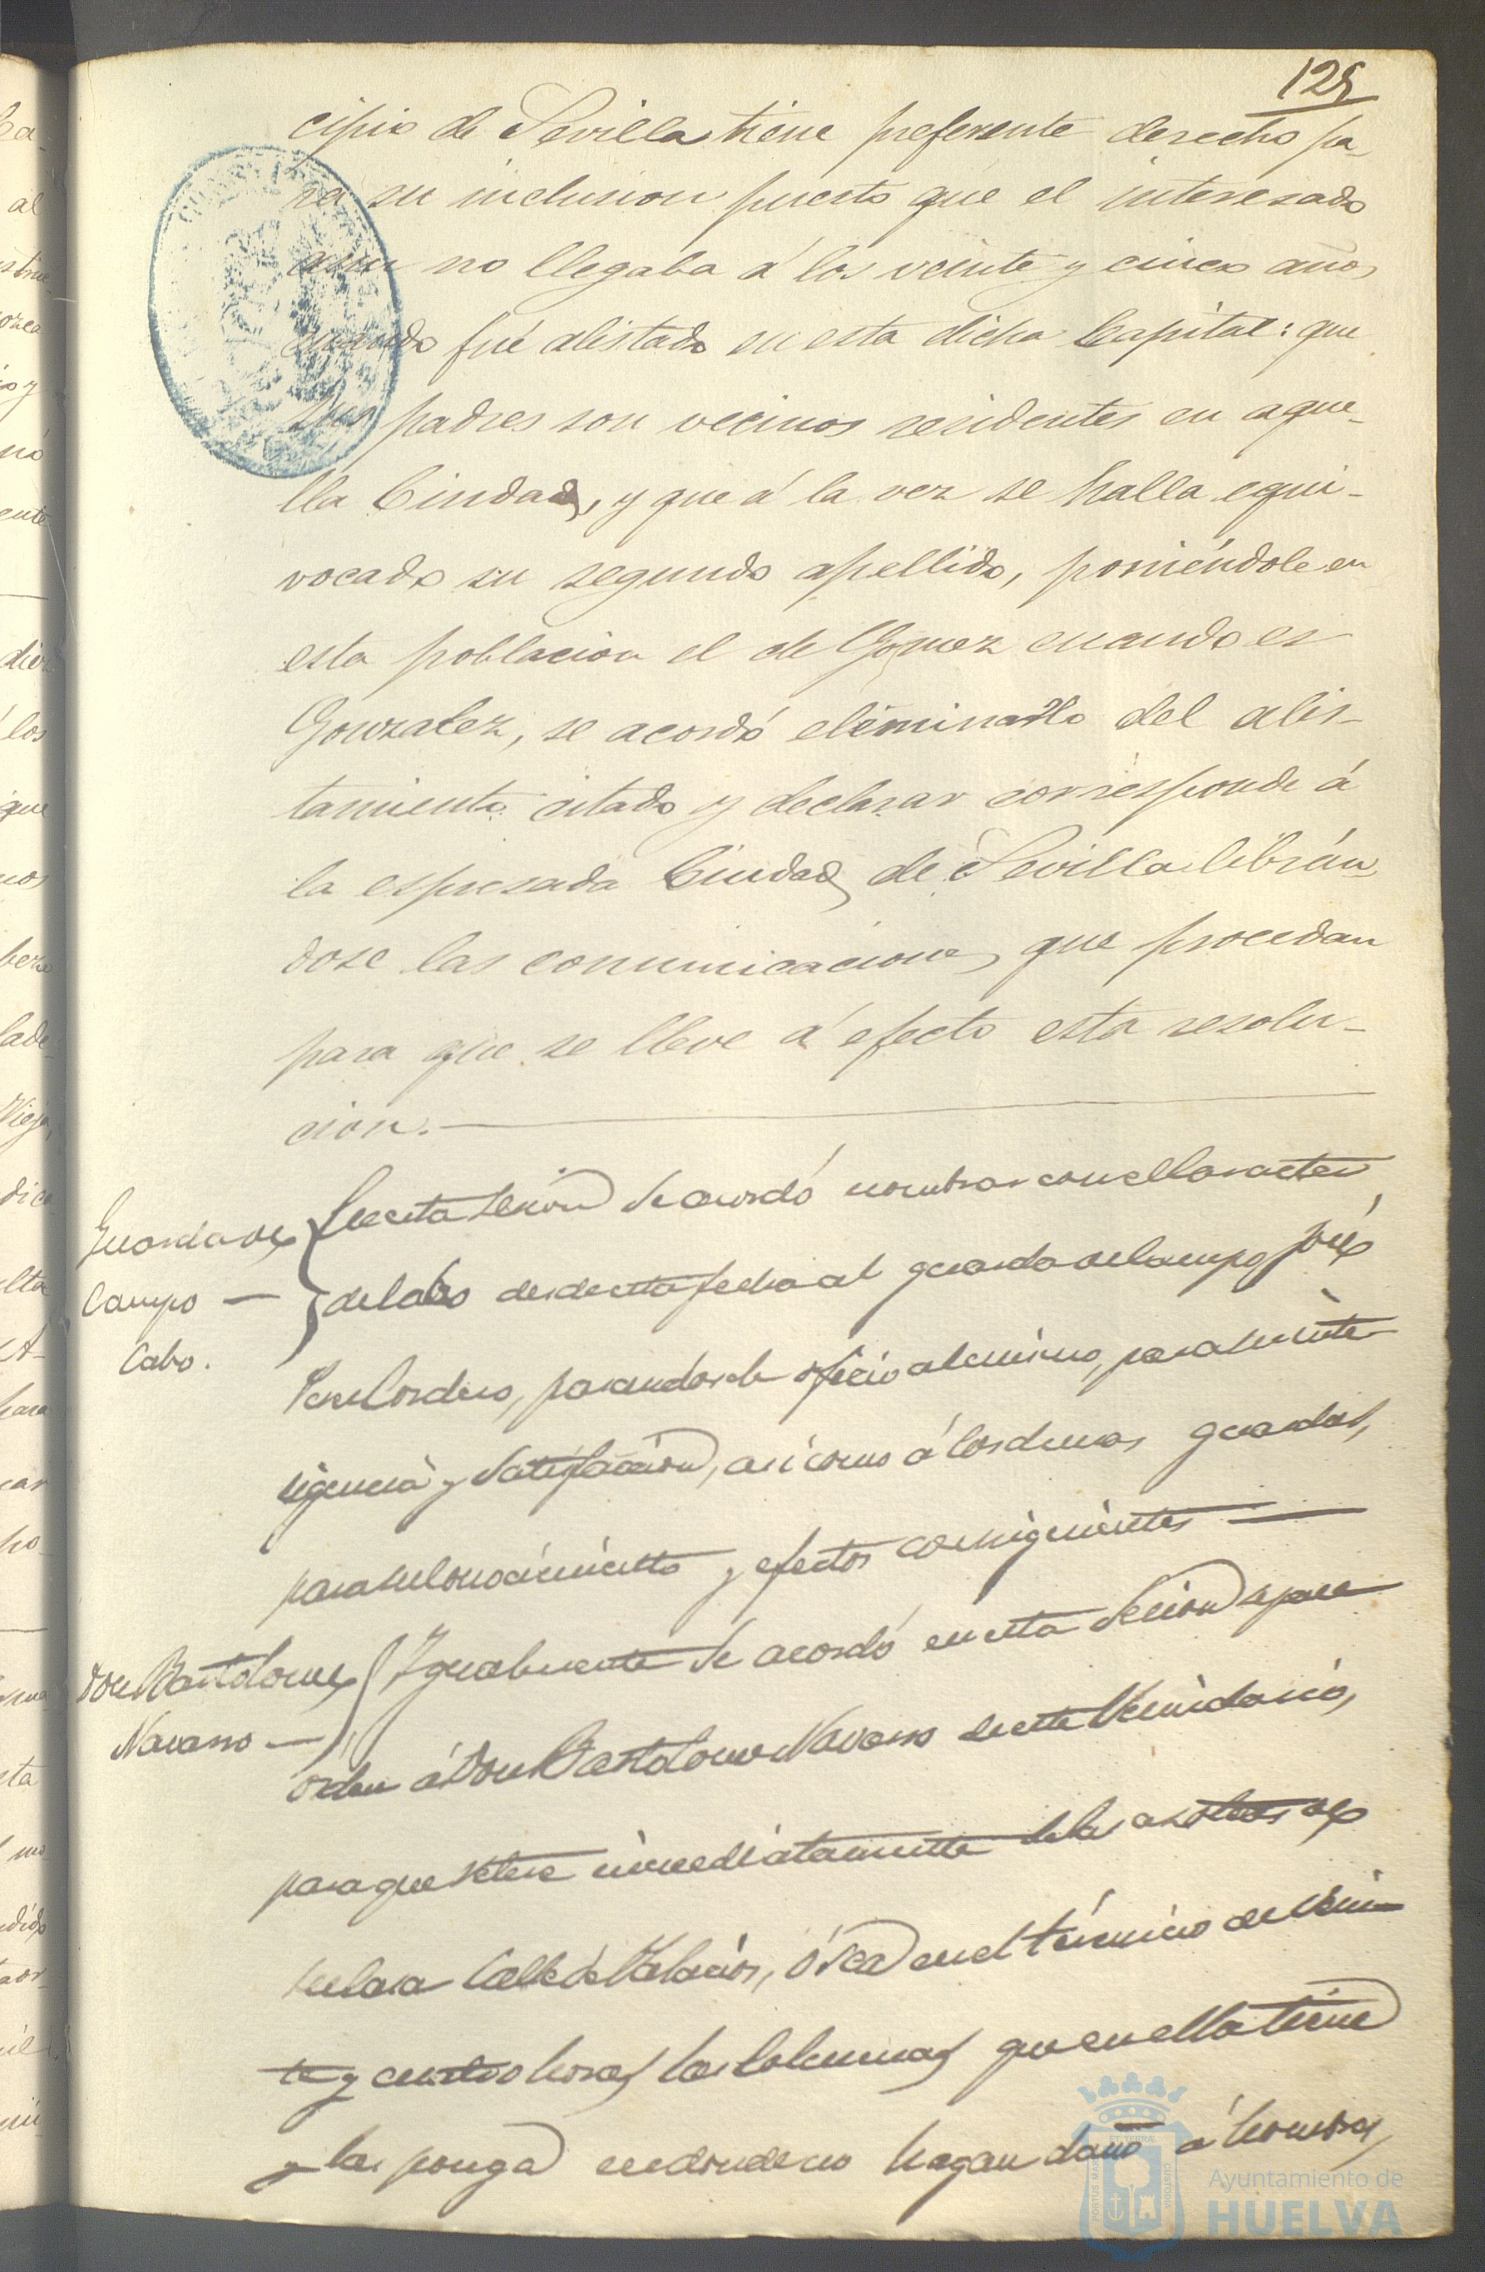 125
cipio de Sevilla tiene preferente derecho pa-
ra su inclusion puesto que el interesado
aun no llegaba á los veinte y cinco años
cuando fué alistado en esta dicha Capital: que
sus padres son vecinos residentes en aque-
lla Ciudad, y que á la vez se halla equi-
vocado su segundo apellido, poniéndole en
esta poblacion el de Gomez cuando es
Gonzalez, se acordó eliminarlo del alis-
tamiento citado y declarar corresponde á
la espresada Ciudad de Sevilla librán-
dose las comunicaciones que procedan
para que se lleve á efecto esta resolu-
cion.
Guarda de
Campo
Cabo.
En esta sesion se acordó nombrar con el caracter
de Cabo desde esta fecha al guarda de campo José
Cordero, pasandosele oficio al mismo, para su inte-
ligencia y satisfaccion, asi como á los demas guardas,
para su conocimiento y efectos consiguientes
Don Bartolome
Navarro
Igualmente se acordó en esta Sesion se pase
órden á Don Bartolome Navarro de este Vecindario,
para que retire inmediatamente de las azoteas de
su casa Calle de Palacios, ó sea en el término de vein-
te y cuatro horas las Columnas que en ella tiene
y las ponga en donde no hagan daño á hombres
Ayuntamiento de
HUELVA